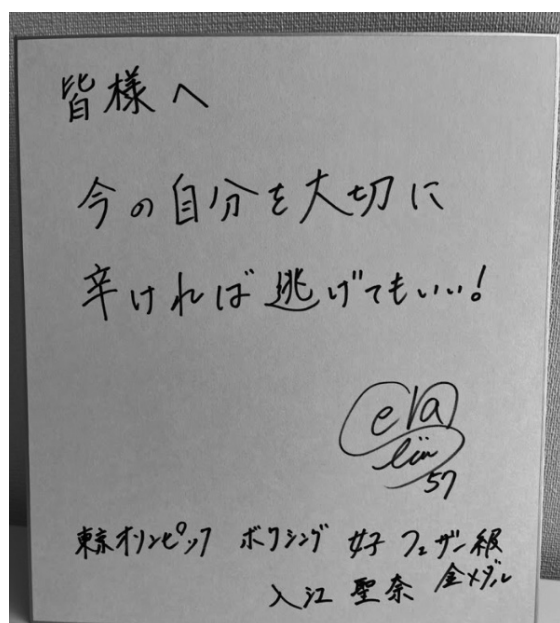 皆様へ
今の自分を大切に
辛ければ逃げてもいい!
57
東京オリンピック ボクシング 女子 フェザー級
入江 聖奈 金メダル